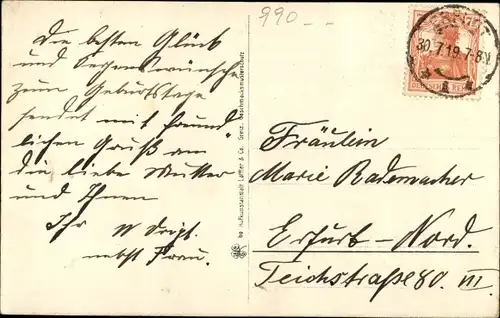 990.
Die besten Glück
und Segenswünsche
zum Geburtstage
sendet mit freund-
lichen Gruß an
die liebe Mutter
und Ihnen
Ihr W
nebst Frau.
Kunstanstalt Löffler & Co. Greiz. Geschmacksmusterschutz
30.7.19.7-8N
DEUTSCHES REICH
Fräulein
Marie Rademacher
Erfurt-Nord.
Teichstraße 80. III.